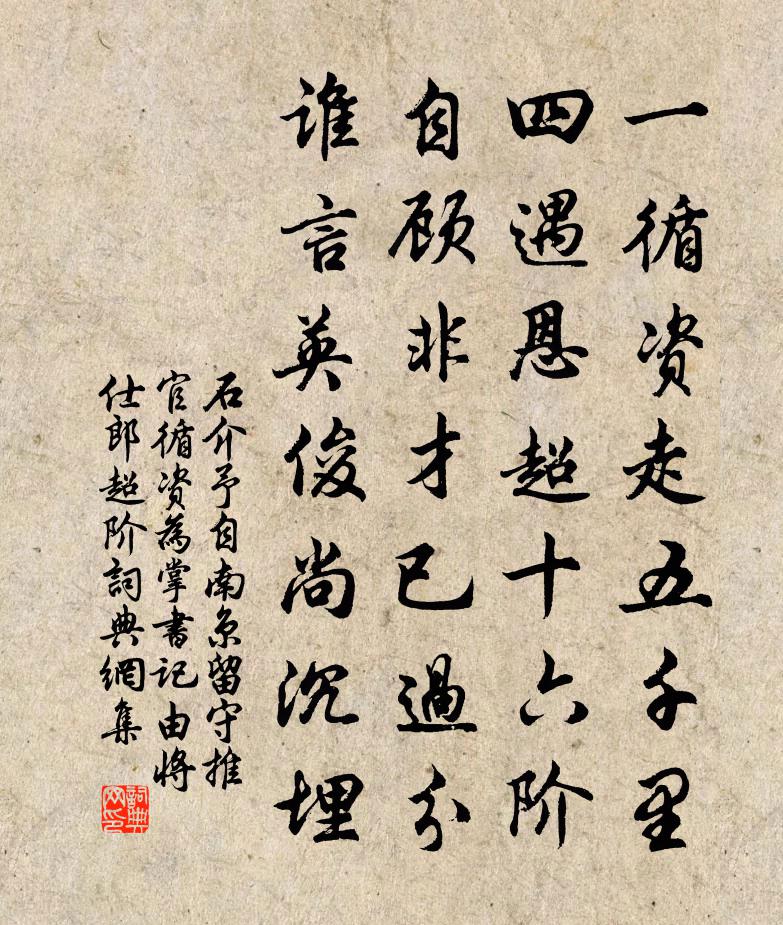 一循资走五千里
四遇恩超十六阶
自顾非才已過分
谁言英俊尚沉埋
石介予自南京留守推
官循资為掌書记由将
仕郎超阶詞典網集
詞典
网印